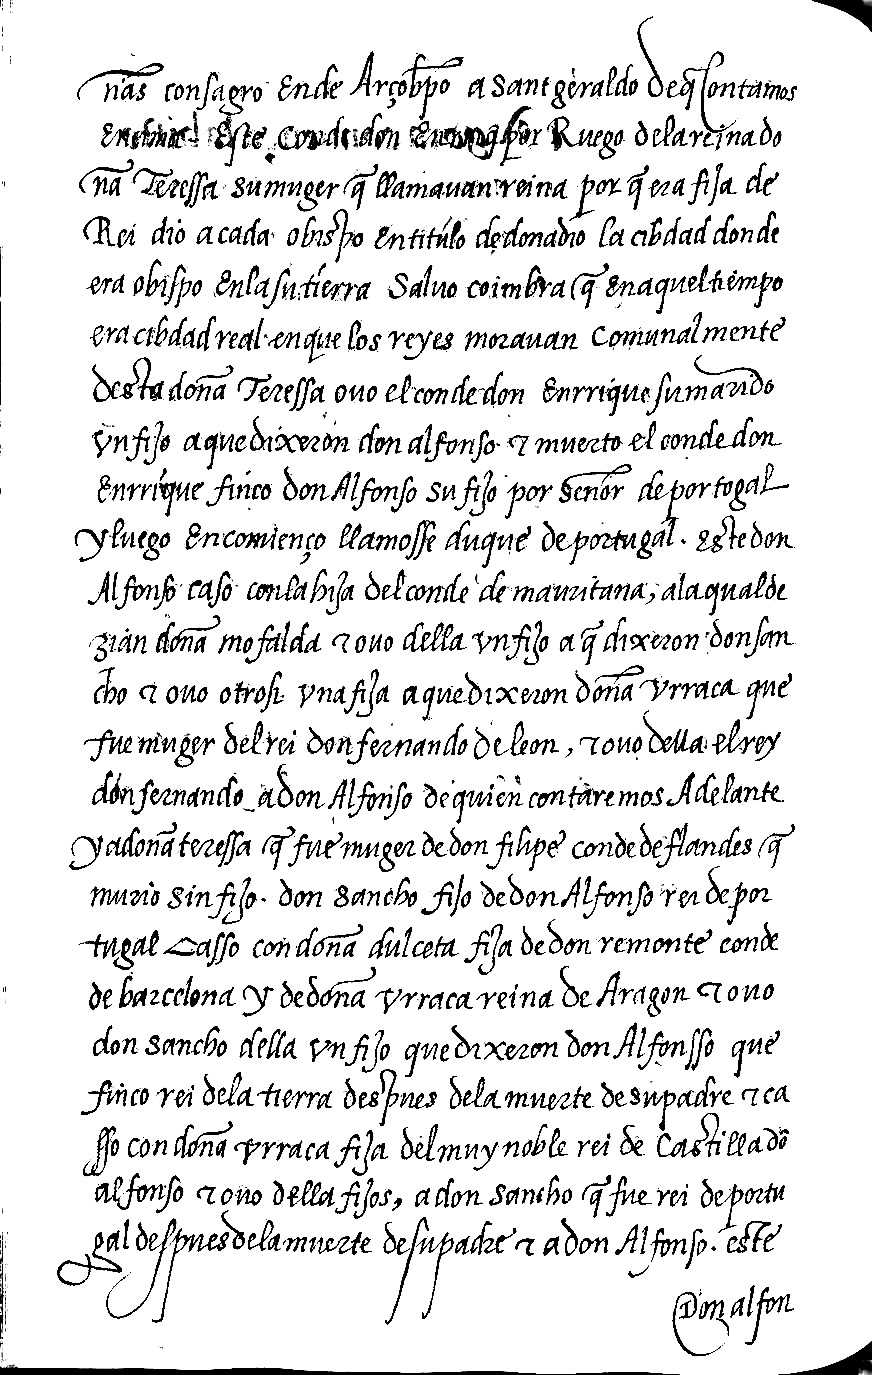 nas consagro ende Arçobpo a sant geraldo de q̃ contamos
este conde don por Ruego dela reina do
ña Teressa su muger q̃ llamauan reina por q̃ era fija de
Rei dio a cada obispo en titúlo de donadio la cibdad donde
era obispo en la su tierra salvo coimbra q̃ en aquel tiempo
era cibdad real en que los reyes morauan comunalmente
desta doña Teressa ouo el conde don enrrique su marido
vn fijo a que dixeron don alfonso ⁊ muerto el conde don
enrrique finco don Alfonso su fijo por señor de portogal
y luego en comienço llamosse duque de portugal. este don
Alfonso caso con la hija del conde de mauritana, a la qual de
zian doña mofalda ⁊ ouo della vn fijo a q̃ dixeron don san
cho ⁊ ouo otrosi vna fija a que dixeron doña vrraca que
fue muger del rei don fernando de leon, ⁊ ouo della el rey
don fernando a don Alfonso de quien contaremos Adelante
y a doña teressa q̃ fue muger de don filipe conde de flandes q̃
murio sin fijo. don sancho fijo de don Alfonso rei de por
tugal casso con doña dulceta fija de don remonte conde
de barcelona y de doña vrraca reina de Aragon ⁊ ouo
don sancho della vn fijo que dixeron don Alfonsso que
finco rei de la tierra despues de la muerte de su padre ⁊ ca
sso con doña vrraca fija del muy noble rei de Castilla dõ
alfonso ⁊ ouo della fijos, a don sancho q̃ fue rei de portu
gal despues de la muerte de su padre ⁊ a don Alfonso. este
Don alfon